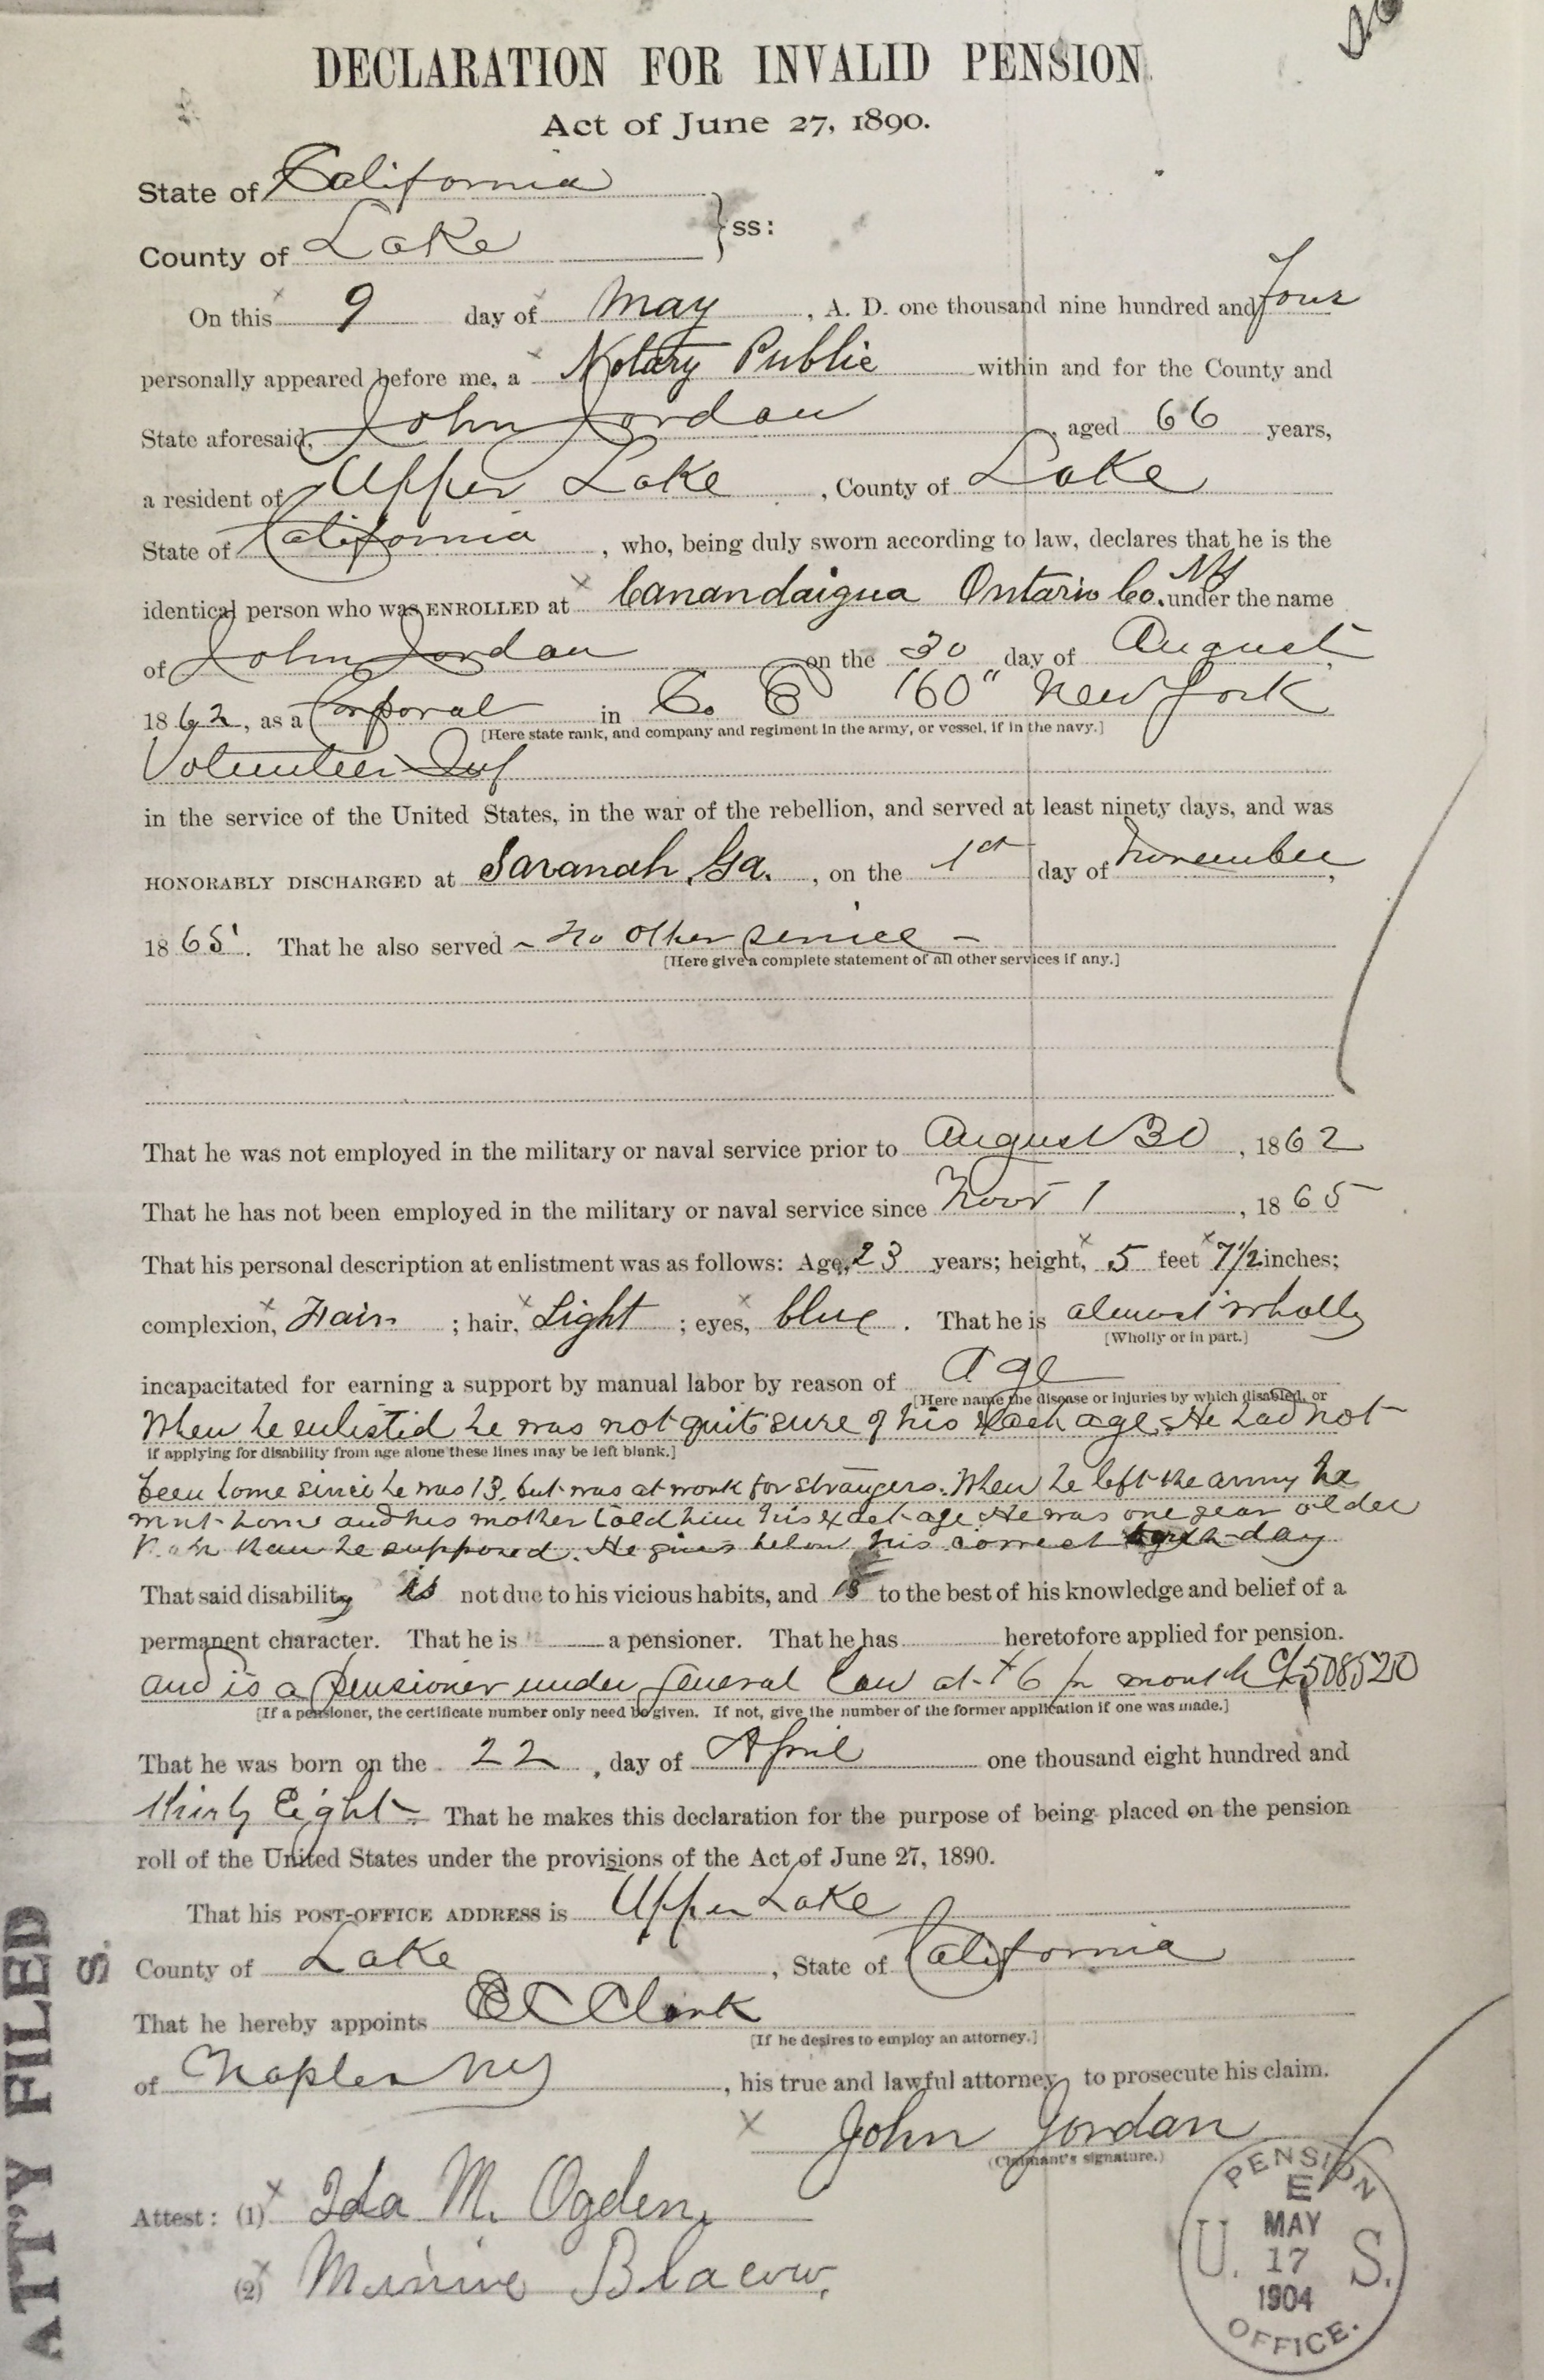 DECLARATION FOR INVALID PENSION.
Act of June 27, 1890.
State of California
County of Lake } ss:
On this 9 day of May, A. D. one thousand nine hundred and four
personally appeared before me, a Notary Public within and for the County and
State aforesaid, John Jordan, aged 66 years,
a resident of Upper Lake, County of Lake
State of California, who, being duly sworn according to law, declares that he is the
identical person who was ENROLLED at Canandaigua Ontario Co. NY under the name
of John Jordan on the 30 day of August,
1862, as a Corporal in Co. 160" New York
[Here state rank, and company and regiment in the army, or vessel, if in the navy.]
Volunteer Inf
in the service of the United States, in the war of the rebellion, and served at least ninety days, and was
HONORABLY DISCHARGED at Savanah, Ga., on the 1st day of November,
1865. That he also served - no other service -
[Here give a complete statement of all other services if any.]
That he was not employed in the military or naval service prior to August 30, 1862
That he has not been employed in the military or naval service since Novr 1, 1865
That his personal description at enlistment was as follows: Age, 23 years; height, 5 feet 7 1/2 inches;
complexion, Fair; hair, Light; eyes, blue. That he is almost wholly
[Wholly or in part.]
incapacitated for earning a support by manual labor by reason of Age
[Here name the disease or injuries by which disabled, or
When he enlisted he was not quite sure of his exact age. He had not
if applying for disability from age alone these lines may be left blank.]
been home since he was 13. but was at work for strangers. When he left the army he
went home and his mother told him his exact age. He was one year older
than he supposed. He gives below his correct birth day
That said disability is not due to his vicious habits, and is to the best of his knowledge and belief of a
permanent character. That he is a pensioner. That he has heretofore applied for pension.
and is a pensioner under general law at $6 pr month Ct 508520
[If a pensioner, the certificate number only need be given. If not, give the number of the former application if one was made.]
That he was born on the 22, day of April one thousand eight hundred and
thirty Eight. That he makes this declaration for the purpose of being placed on the pension
roll of the United States under the provisions of the Act of June 27, 1890.
That his POST-OFFICE ADDRESS is Upper Lake
County of Lake, State of California
That he hereby appoints E C Clark
[If he desires to employ an attorney.]
of Naples NY, his true and lawful attorney to prosecute his claim.
John Jordan
(Claimant's signature.)
Attest: (1) Ida M. Ogden.
(2) Minnie
PENSION OFFICE.
E
MAY
U. 17 S.
1904
ATT'Y FILED
S.